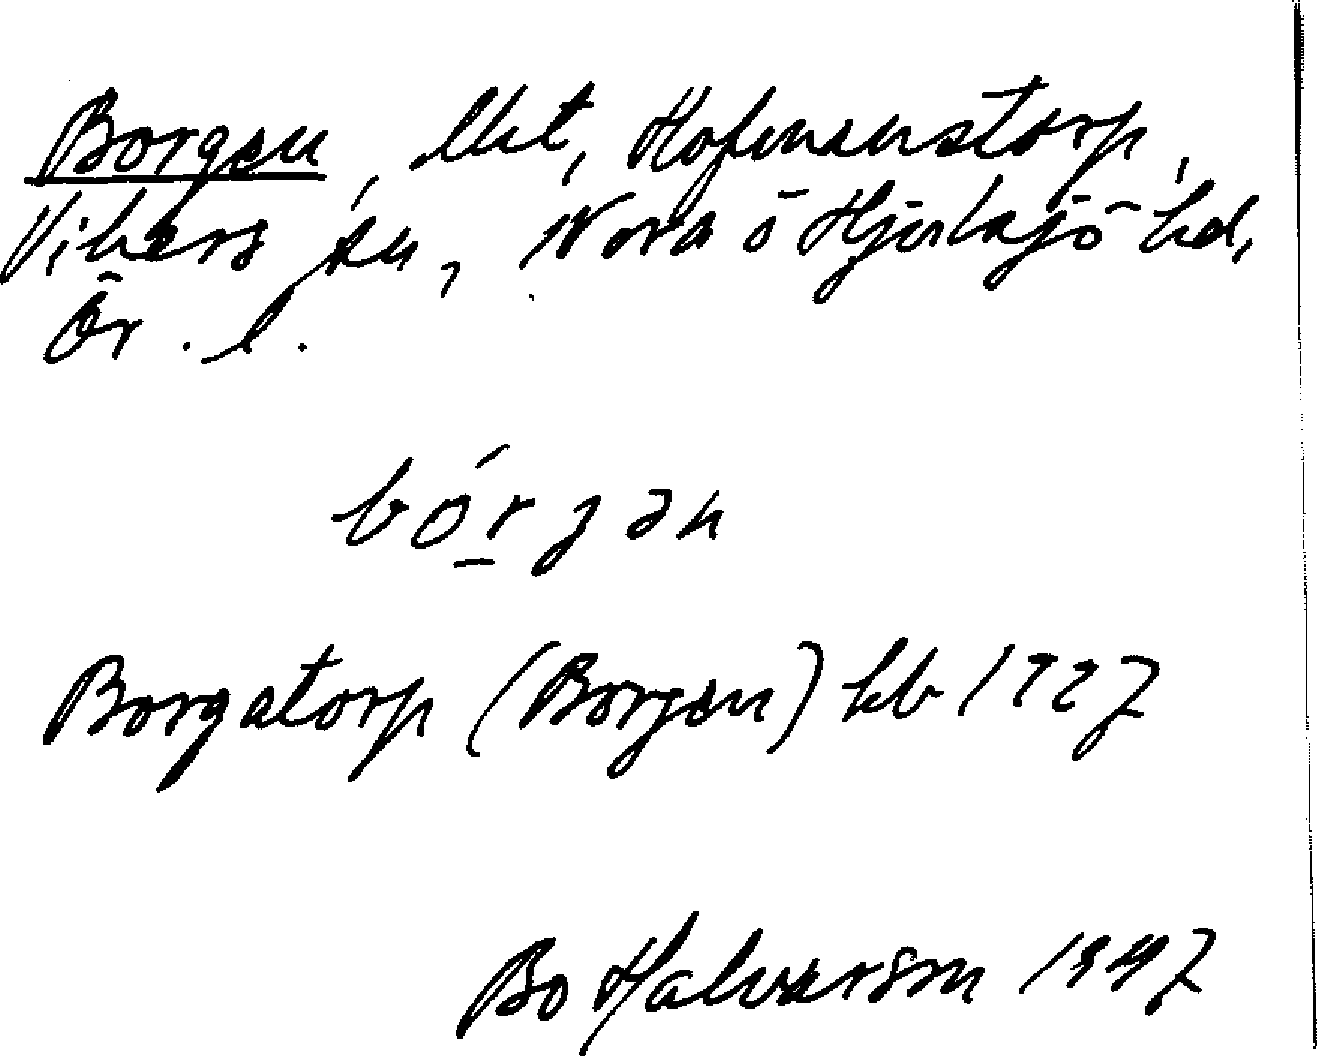 Borgen, lht, Hofmanstorp,
Vikers sn, Nora o Hjulsjö hd,
Ör. l.
bórgən
Borgatorp (Borgen) kb 1927
Bo Halvarson 1947